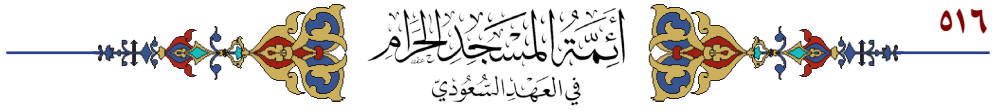 ٥١٦
أَئِمَّةُ الْمَسْجِدِ الْحَرَامِ
فِي الْعَهْدِ السُّعُودِيِّ